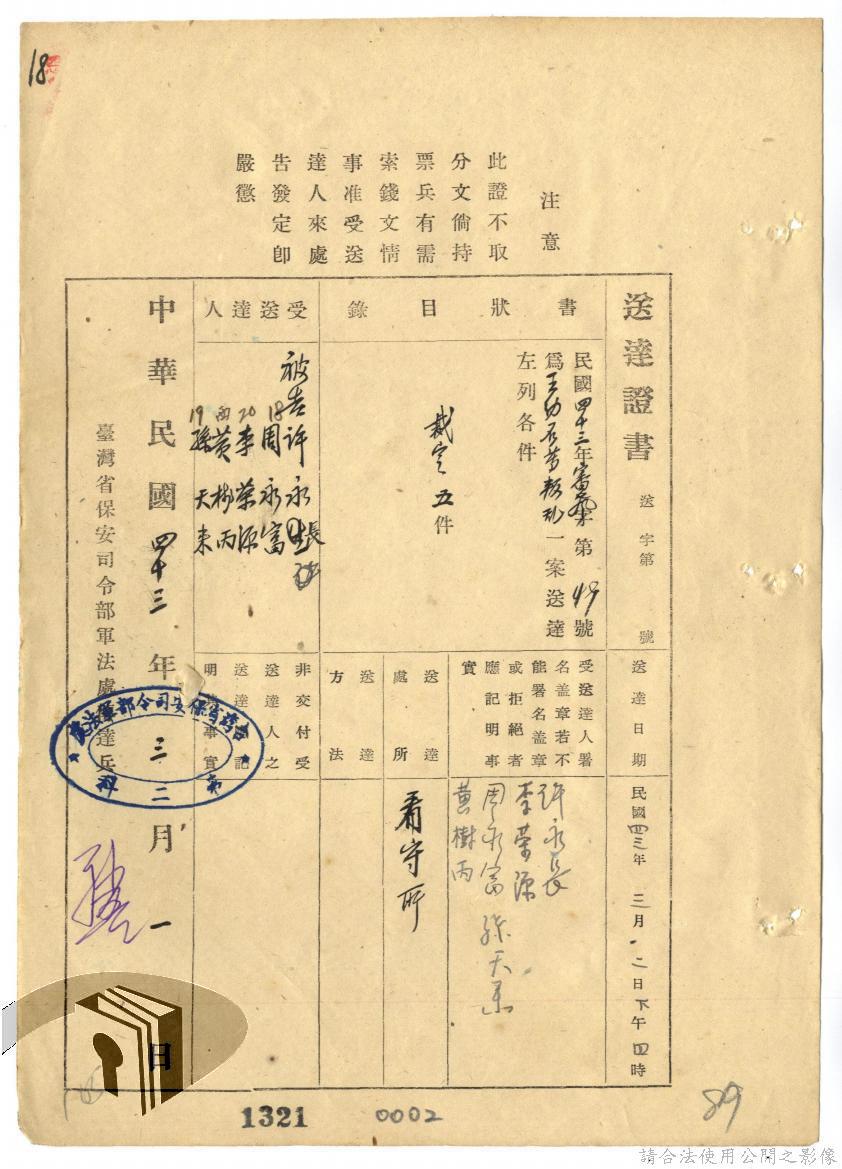 18
注意
此證不取
分文倘持
票兵有需
索錢文情
事准受送
達人來處
告發定卽
嚴懲
送達證書
送字第號
送達日期
民國四三年三月二日下午四時
書狀目錄
民國四十三年審第49號
爲王幼石等叛亂一案送達
左列各件
裁定五件
受送達人署
名蓋章若不
能署名蓋章
或拒絕者
應記明事
實
許永長
李榮源
周永富
黃樹丙
孫天來
送達處所
看守所
送達方法
受送達人
被告許永長
18周永富
20李榮源
黃樹丙
19孫天來
非交付受
送達人之
送達記
明其事實
中華民國四十三年三月一日
臺灣省保安司令部軍法處送達兵
臺灣省保安司令部軍法處
三二
1321
0002
89
請合法使用公開之影像